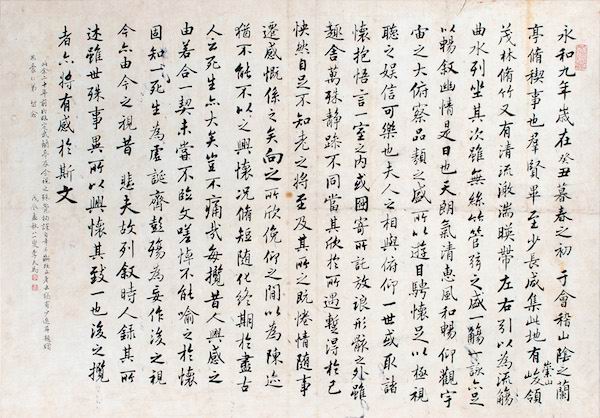 永和九年歲在癸丑暮春之初于會稽山陰之蘭
亭脩稧事也羣賢畢至少長咸集此地有崇山峻領
茂林脩竹又有清流激湍暎帶左右引以為流觴
曲水列坐其次雖無絲竹管弦之盛一觴一詠亦足
以暢叙幽情是日也天朗氣清惠風和暢仰觀宇
宙之大俯察品類之盛所以遊目騁懷足以極視
聽之娛信可樂也夫人之相與俯仰一世或取諸
懷抱悟言一室之内或因寄所託放浪形骸之外雖
趣舍萬殊靜躁不同當其欣於所遇暫得於己
怏然自足不知老之將至及其所之既惓情隨事
遷感慨係之矣向之所欣俛仰之閒以為陳迹
猶不能不以之興懷況脩短隨化終期於盡古
人云死生亦大矣豈不痛哉每攬昔人興感之
由若合一契未嘗不臨文嗟悼不能喻之於懷
固知一死生為虛誕齊彭殤為妄作後之視
今亦由今之視昔悲夫故列叙時人錄其所
述雖世殊事異所以興懷其致一也後之攬
者亦將有感於斯文